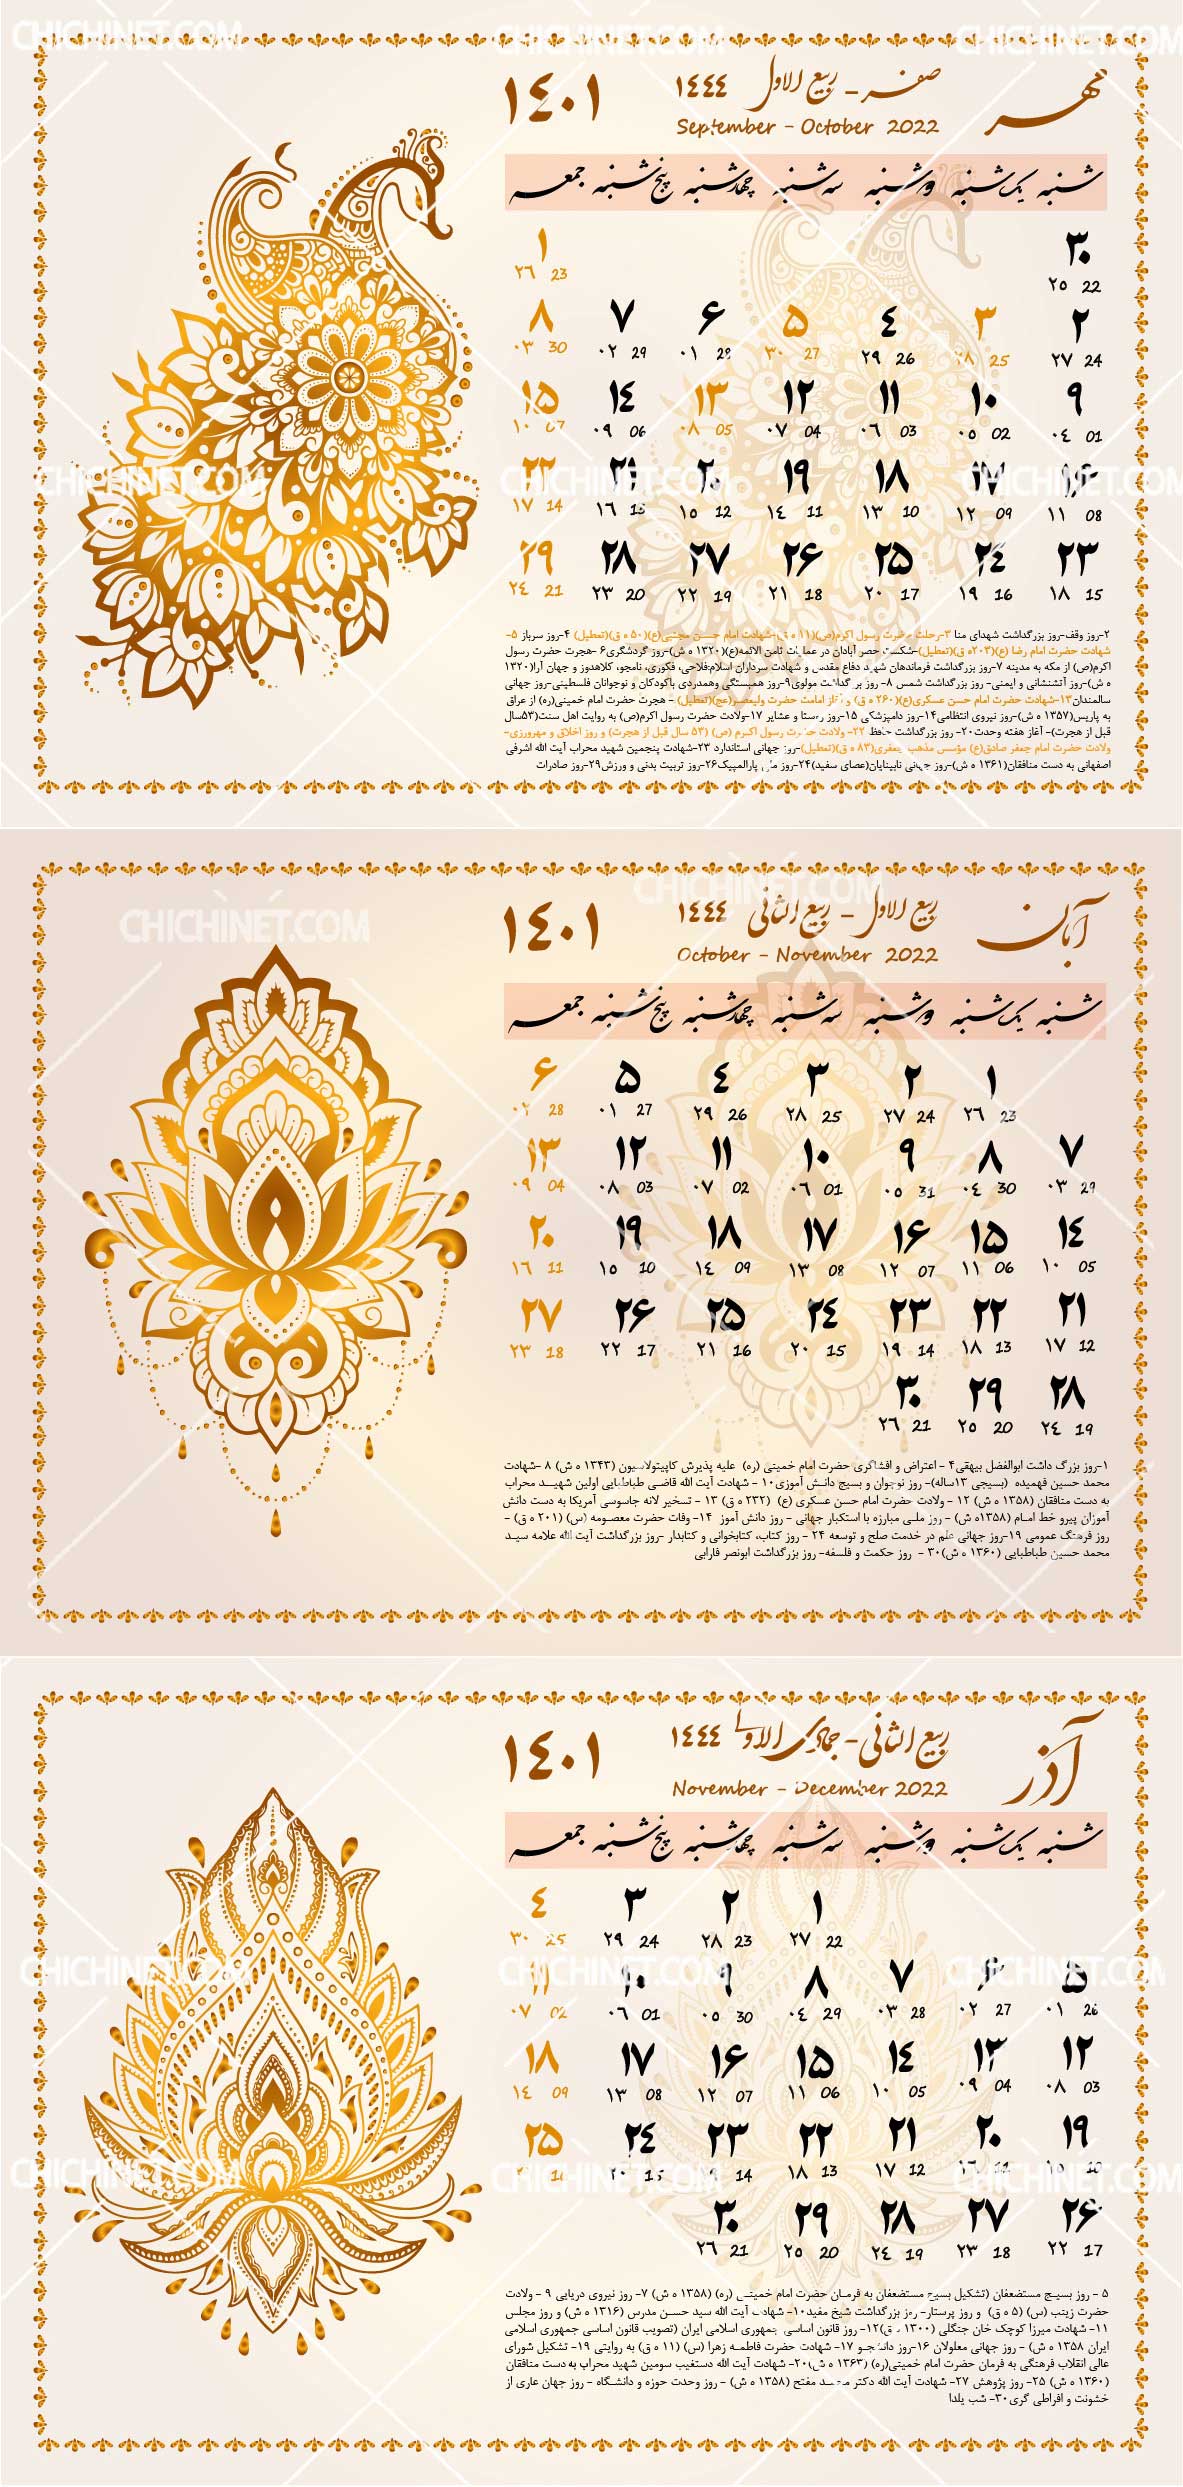 CHICHINET.COM CHICHINET.COM CHICHINET.COM
مهر
صفر - ربیع الاول ۱۴۴۴
September - October 2022
۱۴۰۱
شنبه یکشنبه دوشنبه سه‌شنبه چهارشنبه پنج‌شنبه جمعه
۳۰ ۱
22 ۲۵ 23 ۲۶
۲ ۳ ۴ ۵ ۶ ۷ ۸
24 ۲۷ 25 ۲۸ 26 ۲۹ 27 ۳۰ 28 ۰۱ 29 ۰۲ 30 ۰۳
۹ ۱۰ ۱۱ ۱۲ ۱۳ ۱۴ ۱۵
01 ۰۴ 02 ۰۵ 03 ۰۶ 04 ۰۷ 05 ۰۸ 06 ۰۹ 07 ۱۰
CHICHINET.COM CHICHINET.COM CHICHINET.COM
۱۶ ۱۷ ۱۸ ۱۹ ۲۰ ۲۱ ۲۲
08 ۱۱ 09 ۱۲ 10 ۱۳ 11 ۱۴ 12 ۱۵ 13 ۱۶ 14 ۱۷
۲۳ ۲۴ ۲۵ ۲۶ ۲۷ ۲۸ ۲۹
15 ۱۸ 16 ۱۹ 17 ۲۰ 18 ۲۱ 19 ۲۲ 20 ۲۳ 21 ۲۴
۲-روز وقف-روز بزرگداشت شهدای منا ۳-رحلت حضرت رسول اکرم(ص)(۱۱ ه ق)-شهادت امام حسن مجتبی(ع)(۵۰ ه ق)(تعطیل) ۴-روز سرباز ۵-
شهادت حضرت امام رضا (ع)(۲۰۳ه ق)(تعطیل)-شکست حصر آبادان در عملیات ثامن الائمه(ع)(۱۳۲۰ ه ش)-روز گردشگری۶ -هجرت حضرت رسول
اکرم(ص) از مکه به مدینه ۷-روز بزرگداشت فرماندهان شهید دفاع مقدس و شهادت سرداران اسلام:فلاحی، فکوری، نامجو، کلاهدوز و جهان آرا(۱۳۲۰
ه ش)-روز آتشنشانی و ایمنی- روز بزرگداشت شمس ۸- روز بزرگداشت مولوی۹-روز همبستگی وهمدردی باکودکان و نوجوانان فلسطینی-روز جهانی
سالمندان۱۳-شهادت حضرت امام حسن عسکری(ع)(۲۶۰ ه ق) و آغاز امامت حضرت ولیعصر(عج)(تعطیل) - هجرت حضرت امام خمینی(ره) از عراق
به پاریس(۱۳۵۷ ه ش)-روز نیروی انتظامی۱۴-روز دامپزشکی ۱۵-روز روستا و عشایر ۱۷-ولادت حضرت رسول اکرم(ص) به روایت اهل سنت(۵۳سال
قبل از هجرت)- آغاز هفته وحدت۲۰- روز بزرگداشت حافظ ۲۲- ولادت حضرت رسول اکرم (ص) (۵۳ سال قبل از هجرت) و روز اخلاق و مهرورزی-
ولادت حضرت امام جعفر صادق(ع) مؤسس مذهب جعفری(۸۳ ه ق)(تعطیل)-روز جهانی استاندارد ۲۳-شهادت پنجمین شهید محراب آیت الله اشرفی
اصفهانی به دست منافقان(۱۳۶۱ ه ش)-روز جهانی نابینایان(عصای سفید)۲۴-روز ملی پارالمپیک۲۶-روز تربیت بدنی و ورزش۲۹-روز صادرات
CHICHINET.COM CHICHINET.COM
آبان
ربیع الاول - ربیع الثانی ۱۴۴۴
October - November 2022
۱۴۰۱
شنبه یکشنبه دوشنبه سه‌شنبه چهارشنبه پنج‌شنبه جمعه
۱ ۲ ۳ ۴ ۵ ۶
23 ۲۶ 24 ۲۷ 25 ۲۸ 26 ۲۹ 27 ۰۱ 28 ۰۲
۷ ۸ ۹ ۱۰ ۱۱ ۱۲ ۱۳
29 ۰۳ 30 ۰۴ 31 ۰۵ 01 ۰۶ 02 ۰۷ 03 ۰۸ 04 ۰۹
۱۴ ۱۵ ۱۶ ۱۷ ۱۸ ۱۹ ۲۰
05 ۱۰ 06 ۱۱ 07 ۱۲ 08 ۱۳ 09 ۱۴ 10 ۱۵ 11 ۱۶
۲۱ ۲۲ ۲۳ ۲۴ ۲۵ ۲۶ ۲۷
12 ۱۷ 13 ۱۸ 14 ۱۹ 15 ۲۰ 16 ۲۱ 17 ۲۲ 18 ۲۳
۲۸ ۲۹ ۳۰
19 ۲۴ 20 ۲۵ 21 ۲۶
۱-روز بزرگ داشت ابوالفضل بیهقی۴ - اعتراض و افشاگری حضرت امام خمینی (ره) علیه پذیرش کاپیتولاسیون (۱۳۴۳ ه ش) ۸ -شهادت
محمد حسین فهمیده (بسیجی ۱۳ساله)- روز نوجوان و بسیج دانش آموزی۱۰ - شهادت آیت الله قاضی طباطبایی اولین شهید محراب
به دست منافقان (۱۳۵۸ ه ش) ۱۲ - ولادت حضرت امام حسن عسکری (ع) (۲۳۲ ه ق) ۱۳ - تسخیر لانه جاسوسی آمریکا به دست دانش
آموزان پیرو خط امام (۱۳۵۸ه ش) - روز ملی مبارزه با استکبار جهانی - روز دانش آموز ۱۴- وفات حضرت معصومه (س) (۲۰۱ ه ق) -
روز فرهنگ عمومی ۱۹-روز جهانی علم در خدمت صلح و توسعه ۲۴ - روز کتاب، کتابخوانی و کتابدار -روز بزرگداشت آیت الله علامه سید
محمد حسین طباطبایی (۱۳۶۰ ه ش)۳۰ - روز حکمت و فلسفه- روز بزرگداشت ابونصر فارابی
آذر
ربیع الثانی - جمادی الاولی ۱۴۴۴
November - December 2022
۱۴۰۱
شنبه یکشنبه دوشنبه سه‌شنبه چهارشنبه پنج‌شنبه جمعه
۱ ۲ ۳ ۴
22 ۲۷ 23 ۲۸ 24 ۲۹ 25 ۳۰
CHICHINET.COM CHICHINET.COM CHICHINET.COM
۵ ۶ ۷ ۸ ۹ ۱۰ ۱۱
26 ۰۱ 27 ۰۲ 28 ۰۳ 29 ۰۴ 30 ۰۵ 01 ۰۶ 02 ۰۷
۱۲ ۱۳ ۱۴ ۱۵ ۱۶ ۱۷ ۱۸
03 ۰۸ 04 ۰۹ 05 ۱۰ 06 ۱۱ 07 ۱۲ 08 ۱۳ 09 ۱۴
۱۹ ۲۰ ۲۱ ۲۲ ۲۳ ۲۴ ۲۵
10 ۱۵ 11 ۱۶ 12 ۱۷ 13 ۱۸ 14 ۱۹ 15 ۲۰ 16
CHICHINET.COM CHICHINET.COM CHICHINET.COM
۲۶ ۲۷ ۲۸ ۲۹ ۳۰
17 ۲۲ 18 ۲۳ 19 ۲۴ 20 ۲۵ 21 ۲۶
۵ - روز بسیج مستضعفان (تشکیل بسیج مستضعفان به فرمان حضرت امام خمینی (ره) (۱۳۵۸ ه ش) ۷- روز نیروی دریایی ۹ - ولادت
حضرت زینب (س) (۵ ه ق) و روز پرستار- روز بزرگداشت شیخ مفید۱۰- شهادت آیت الله سید حسن مدرس (۱۳۱۶ ه ش) و روز مجلس
۱۱- شهادت میرزا کوچک خان جنگلی (۱۳۰۰ ه ق)۱۲- روز قانون اساسی جمهوری اسلامی ایران (تصویب قانون اساسی جمهوری اسلامی
ایران ۱۳۵۸ ه ش) - روز جهانی معلولان ۱۶-روز دانشجو ۱۷- شهادت حضرت فاطمه زهرا (س) (۱۱ ه ق) به روایتی ۱۹- تشکیل شورای
عالی انقلاب فرهنگی به فرمان حضرت امام خمینی(ره) (۱۳۶۳ ه ش)۲۰- شهادت آیت الله دستغیب سومین شهید محراب به دست منافقان
(۱۳۶۰ ه ش) ۲۵- روز پژوهش ۲۷- شهادت آیت الله دکتر محمد مفتح (۱۳۵۸ ه ش) - روز وحدت حوزه و دانشگاه - روز جهان عاری از
خشونت و افراطی گری۳۰- شب یلدا